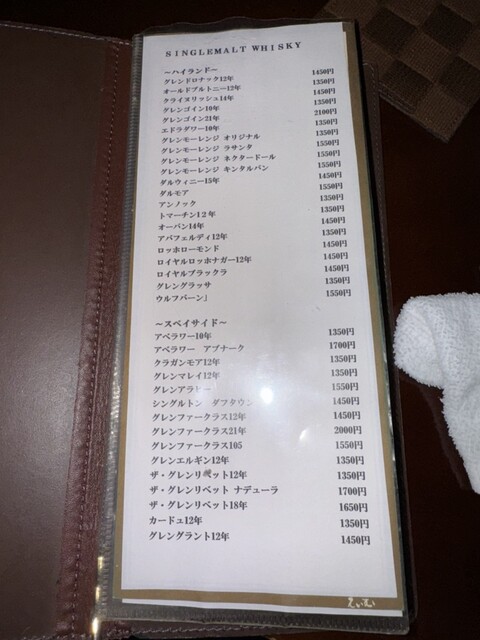 SINGLEMALT WHISKY
～ハイランド～
グレンドロナック12年 1450円
オールドプルトニー12年 1350円
クライヌリッシュ14年 1450円
グレンゴイン10年 1350円
グレンゴイン21年 2100円
エドラダワー10年 1350円
グレンモーレンジ オリジナル 1350円
グレンモーレンジ ラサンタ 1550円
グレンモーレンジ ネクタードール 1550円
グレンモーレンジ キンタルバン 1550円
ダルウィニー15年 1450円
ダルモア 1550円
アンノック 1350円
トマーチン12年 1350円
オーバン14年 1450円
アバフェルディ12年 1350円
ロッホローモンド 1450円
ロイヤルロッホナガー12年 1450円
ロイヤルブラックラ 1450円
グレングラッサ 1350円
ウルフバーン 1550円
～スペイサイド～
アベラワー10年 1350円
アベラワー アブナーク 1700円
クラガンモア12年 1350円
グレンマレイ12年 1350円
グレンアラ 1550円
シングルトン ダフタウン 1450円
グレンファークラス12年 1450円
グレンファークラス21年 2000円
グレンファークラス105 1550円
グレンエルギン12年 1350円
ザ・グレンリベット12年 1350円
ザ・グレンリベット ナデューラ 1700円
ザ・グレンリベット18年 1650円
カードュ12年 1350円
グレングラント12年 1450円
えいむ